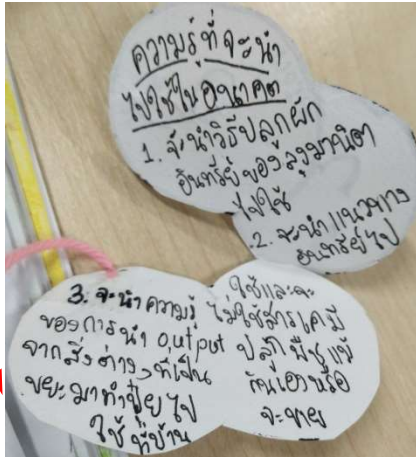 ความรู้ที่จะนำ
ไปใช้ในอนาคต
1. จะนำวิธีปลูกผัก
อินทรีย์ของลุงมานิตา
ไปใช้
2. จะนำแนวทาง
อินทรีย์ไป
ใช้และจะ
ไม่ใช้สารเคมี
ปลูกพืชแม้
กินเองหรือ
จะขาย
3. จะนำความรู้
ของการนำ output
จากสิ่งต่างๆที่เป็น
ขยะมาทำปุ๋ยไป
ใช้ที่บ้าน